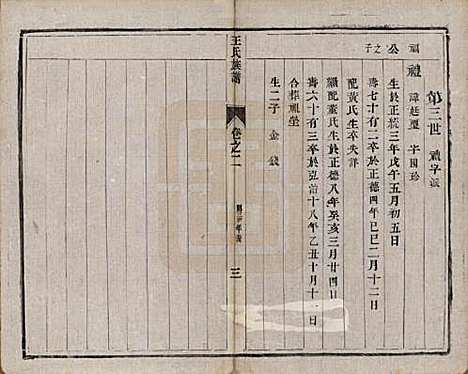 第三世 禮字派
福公之子
禮 諱廷璽 字國珍
生於正統三年戊午五月初五日
壽七十有二卒於正德四年己巳二月十二日
配黃氏生卒失詳
繼配董氏生於正德八年癸亥三月廿四日
壽六十有三卒於弘治十八年乙丑十月十一日
合葬祖塋
生二子 金 錢
王氏族譜
卷之二
三